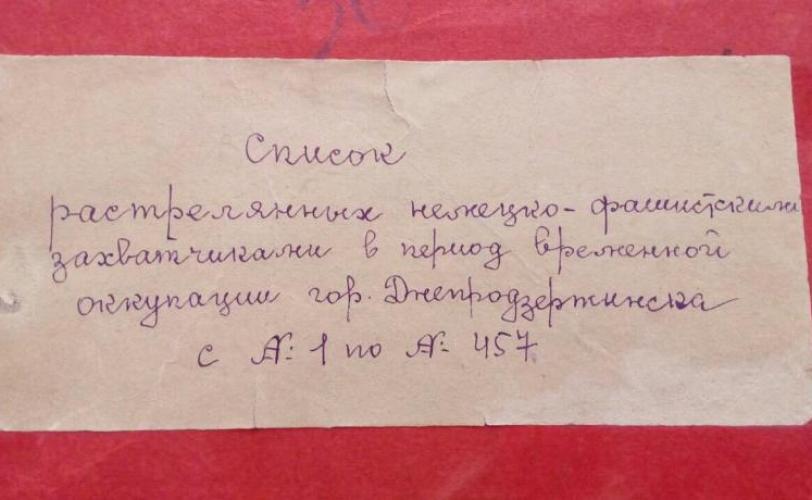 Список
растрелянных немецко-фашистскими
захватчиками в период временной
оккупации гор. Днепродзержинска
с №: 1 по №: 457